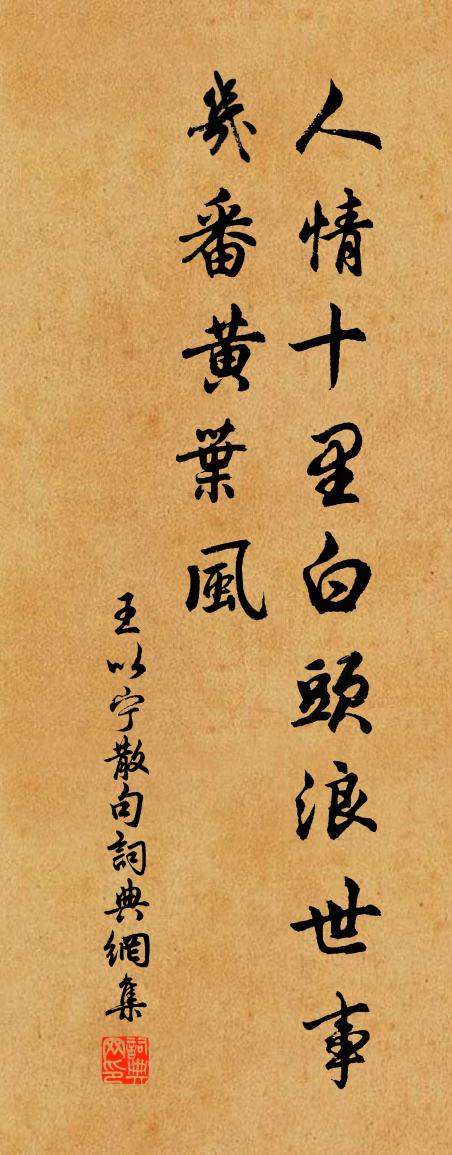 人情十里白頭浪世事
幾番黃葉風
王以宁散句詞典網集
詞典
网印